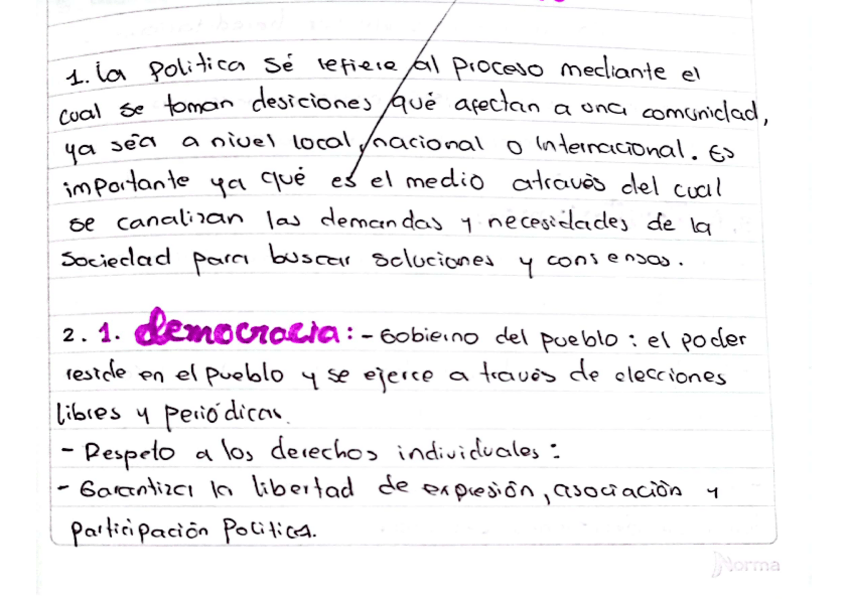 1. La política sé refiere al proceso mediante el
cual se toman desiciones qué afectan a una comunidad,
ya séa a nivel local, nacional o internacional. Es
importante ya qué es el medio através del cual
se canalizan las demandas y necesidades de la
sociedad para buscar soluciones y consensos.
2. 1. democracia: - Gobierno del pueblo: el poder
reside en el pueblo y se ejerce a través de elecciones
libres y periódicas.
- Respeto a los derechos individuales:
- Garantiza la libertad de expresión, asociación y
participación política.
Norma